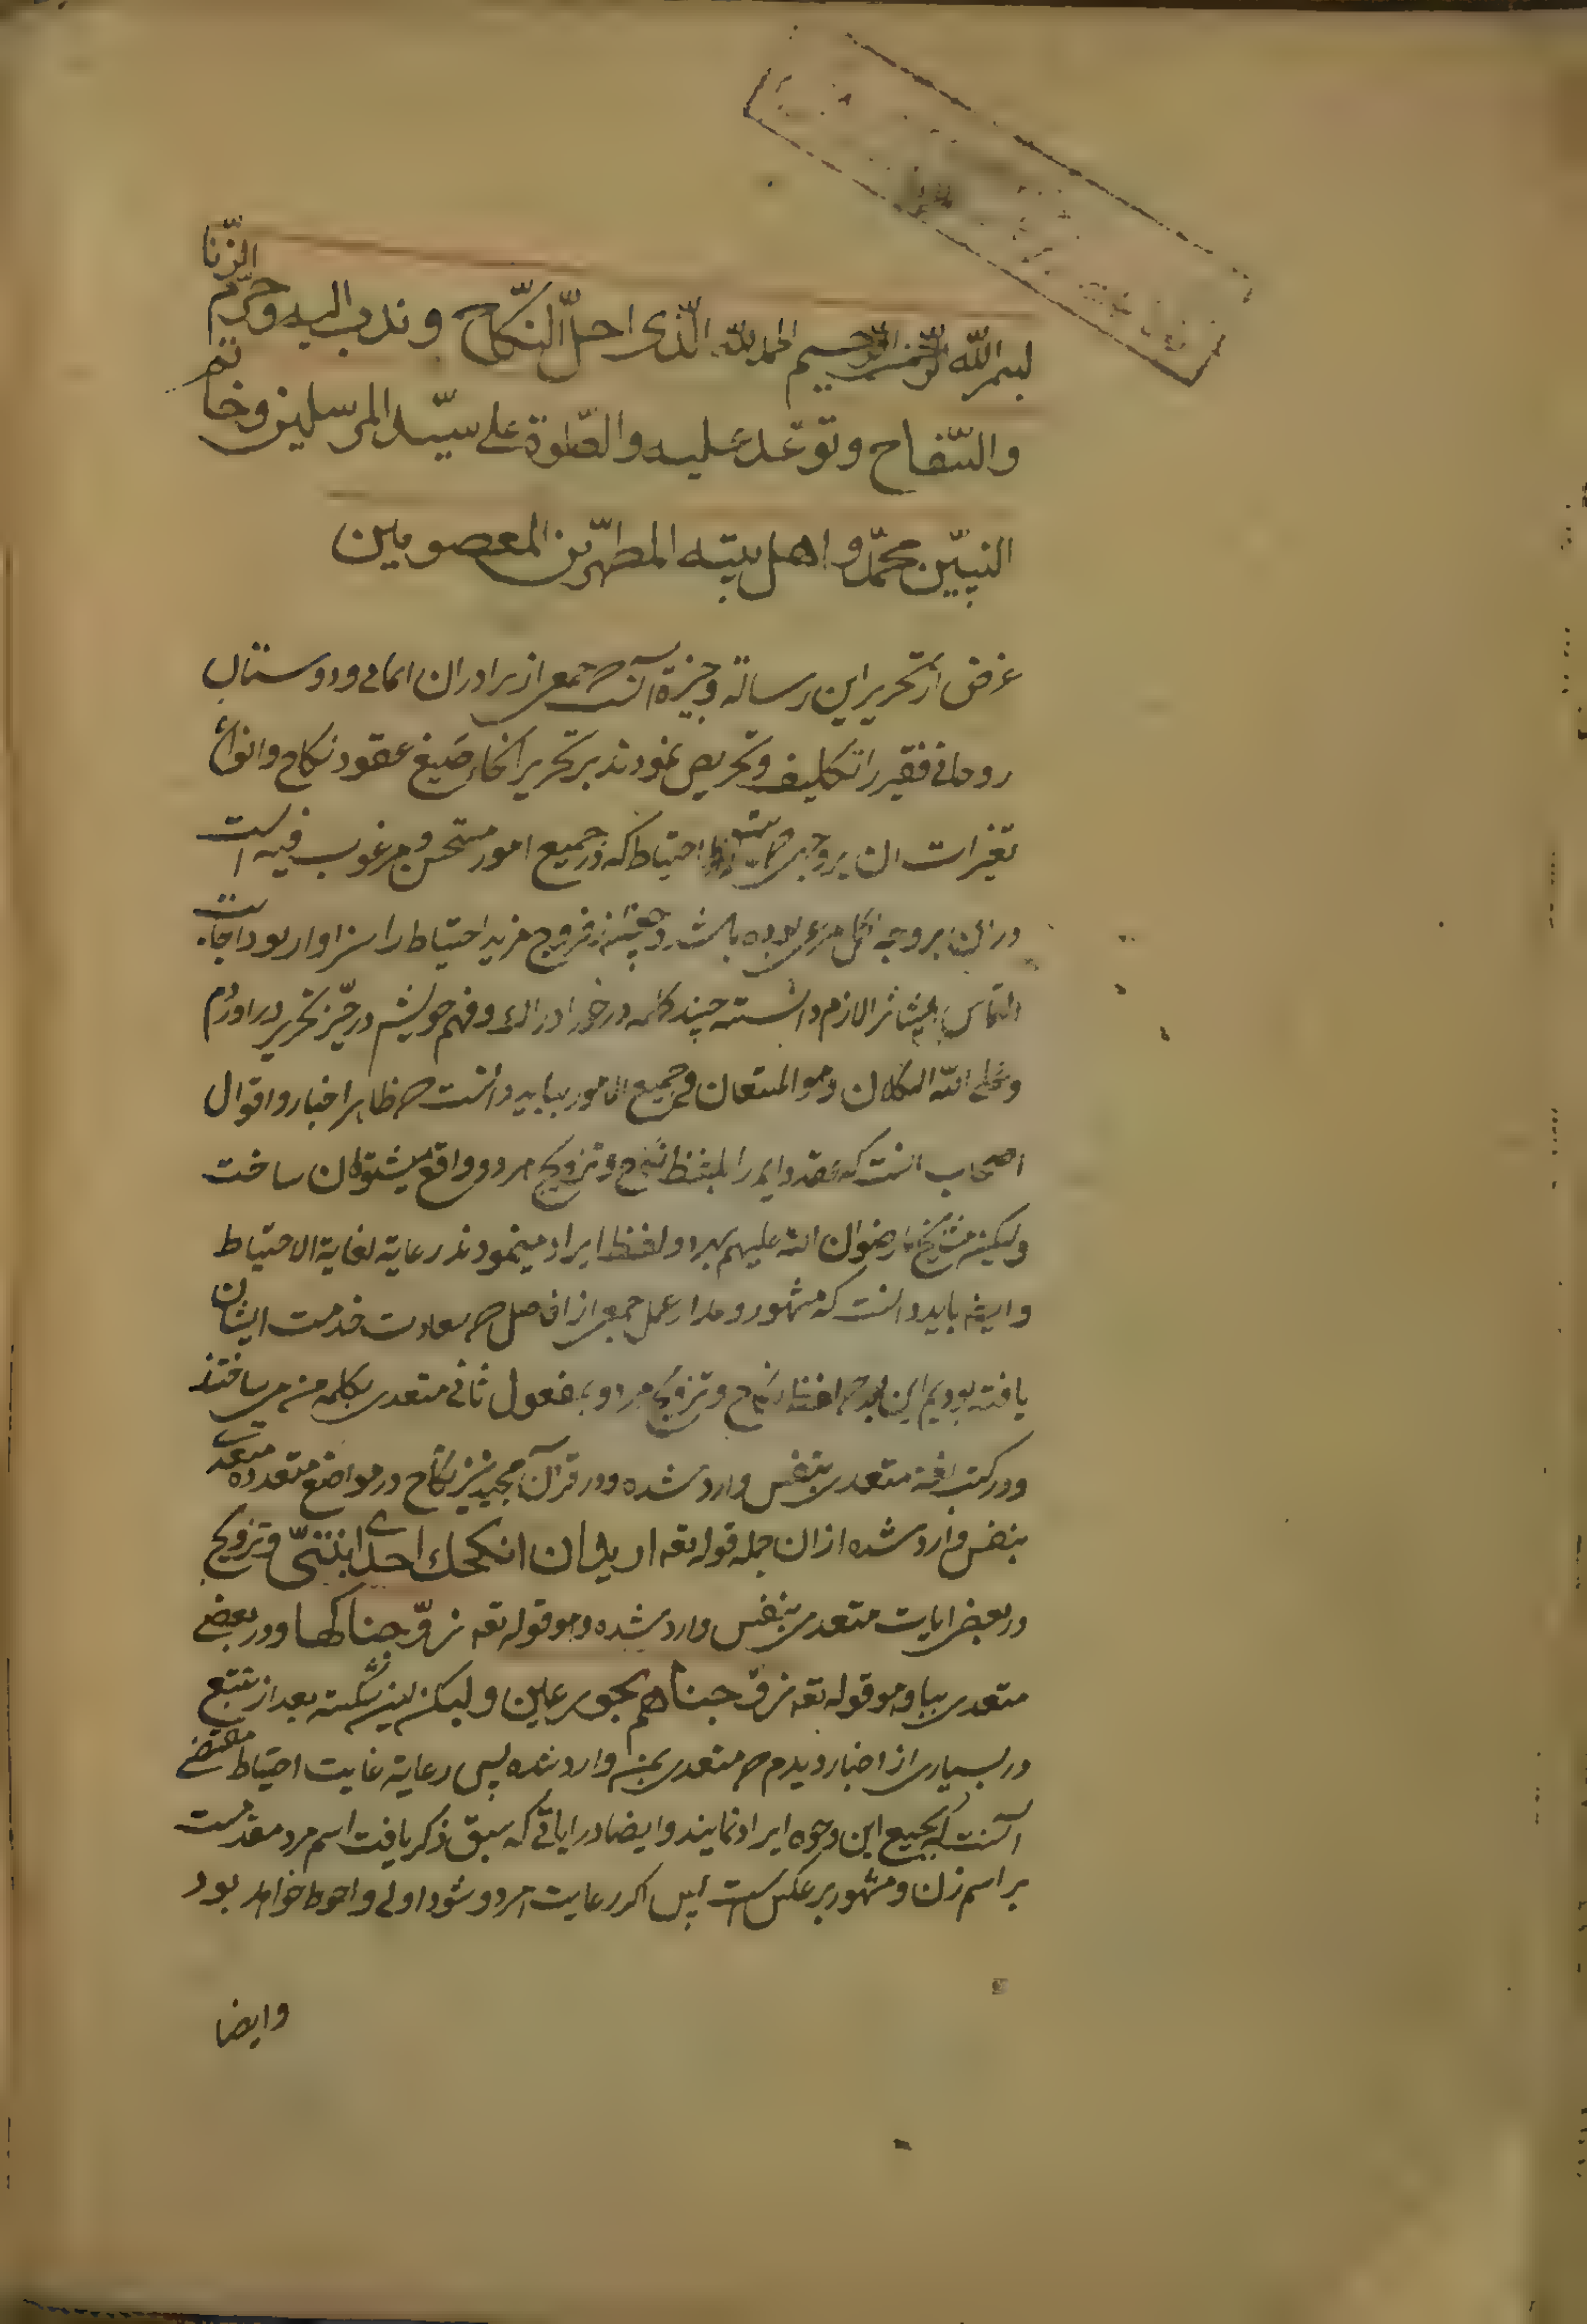 بسم الله الرحمن الرحیم الحمد لله الذی احلّ النّکاح و ندب الیه و حرّم الزّنا
والسّفاح و توعّد علیه والصّلوة علی سیّد المرسلین و خاتم
النبیّین محمّد و اهل بیته المطهّرین المعصومین
غرض از تحریر این رساله وجیزه آنست که جمعی از برادران ایمانی و دوستان
روحانی فقیر را تکلیف و تحریص نمودند بر تحریر انحاء صیغ عقود نکاح و انواع
تغیرات ان بر وجهی که احتیاط که در جمیع امور مستحسن و مرغوب فیه است
در ان بر وجه اکمل مرعی بوده باشد و چون در فروج مزید احتیاط را سزاوار بود اجابت
التماس ایشانرا لازم دانسته چند کلمه در خور ادراک و فهم خویش در حیّز تحریر در اوردم
و علی الله التکلان و هو المستعان فی جمیع الامور بباید دانست که ظاهر اخبار و اقوال
اصحاب انست که عقد دایم را بلفظ نکاح و تزویج هر دو واقع میتوان ساخت
ولیکن مشایخ ما رضوان الله علیهم بهر دو لفظ ایراد مینمودند رعایة لغایة الاحتیاط
و ایضا باید دانست که مشهور و مدار عمل جمعی از افاضل که سعادت خدمت ایشان
یافته بودیم این بود که لفظ نکاح و تزویج هر دو بمفعول ثانی متعدی بکلمه من میساختند
و در کتب لغة متعدی بنفس وارد شده و در قرآن مجید نیز نکاح در مواضع متعدده متعدی
بنفس وارد شده از ان جمله قوله تعه ارید ان انکحک احدی ابنتیّ و تزویج
در بعض ایات متعدی بنفس وارد شده و هو قوله تعه زوّجناکها و در بعضی
متعدی ببا و هو قوله تعه زوّجناهم بحور عین ولیکن این شکسته بعد از تتبع
در بسیاری از اخبار دیدم که متعدی بمن وارد شده پس رعایة غایت احتیاط مقتضی
آنست که بجمیع این وجوه ایراد نمایند و ایضا در ایاتی که سبق ذکر یافت اسم مرد مقدمست
بر اسم زن و مشهور بر عکس است پس اکر رعایت هر دو شود اولی و احوط خواهد بود
و ایضا